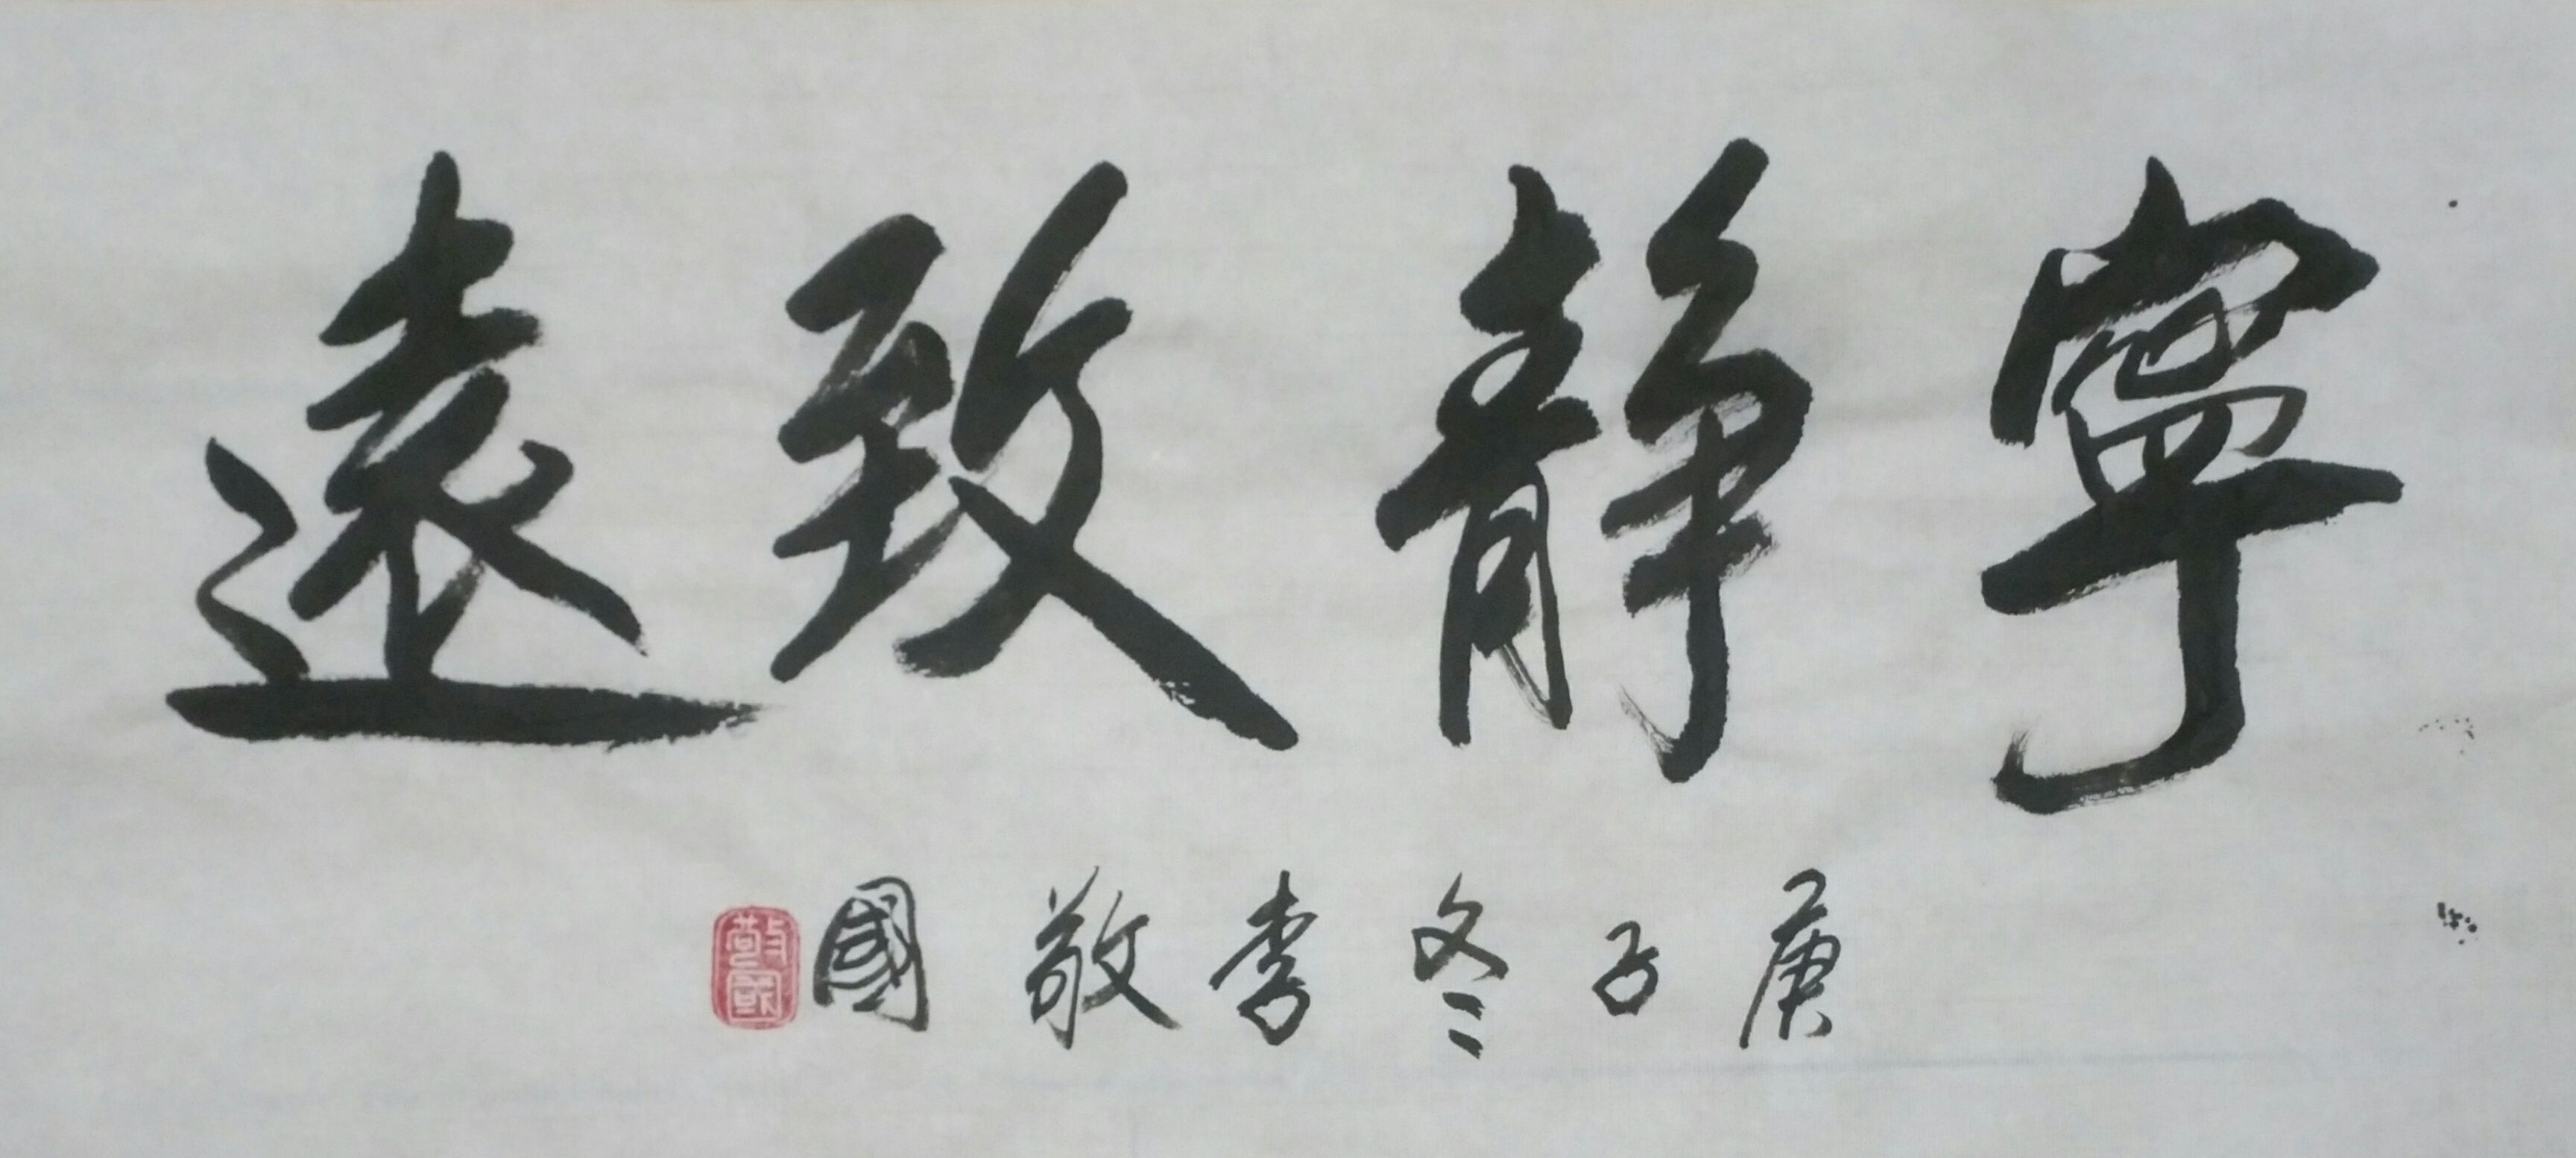 寧静致遠
庚子冬李敬國
敬國